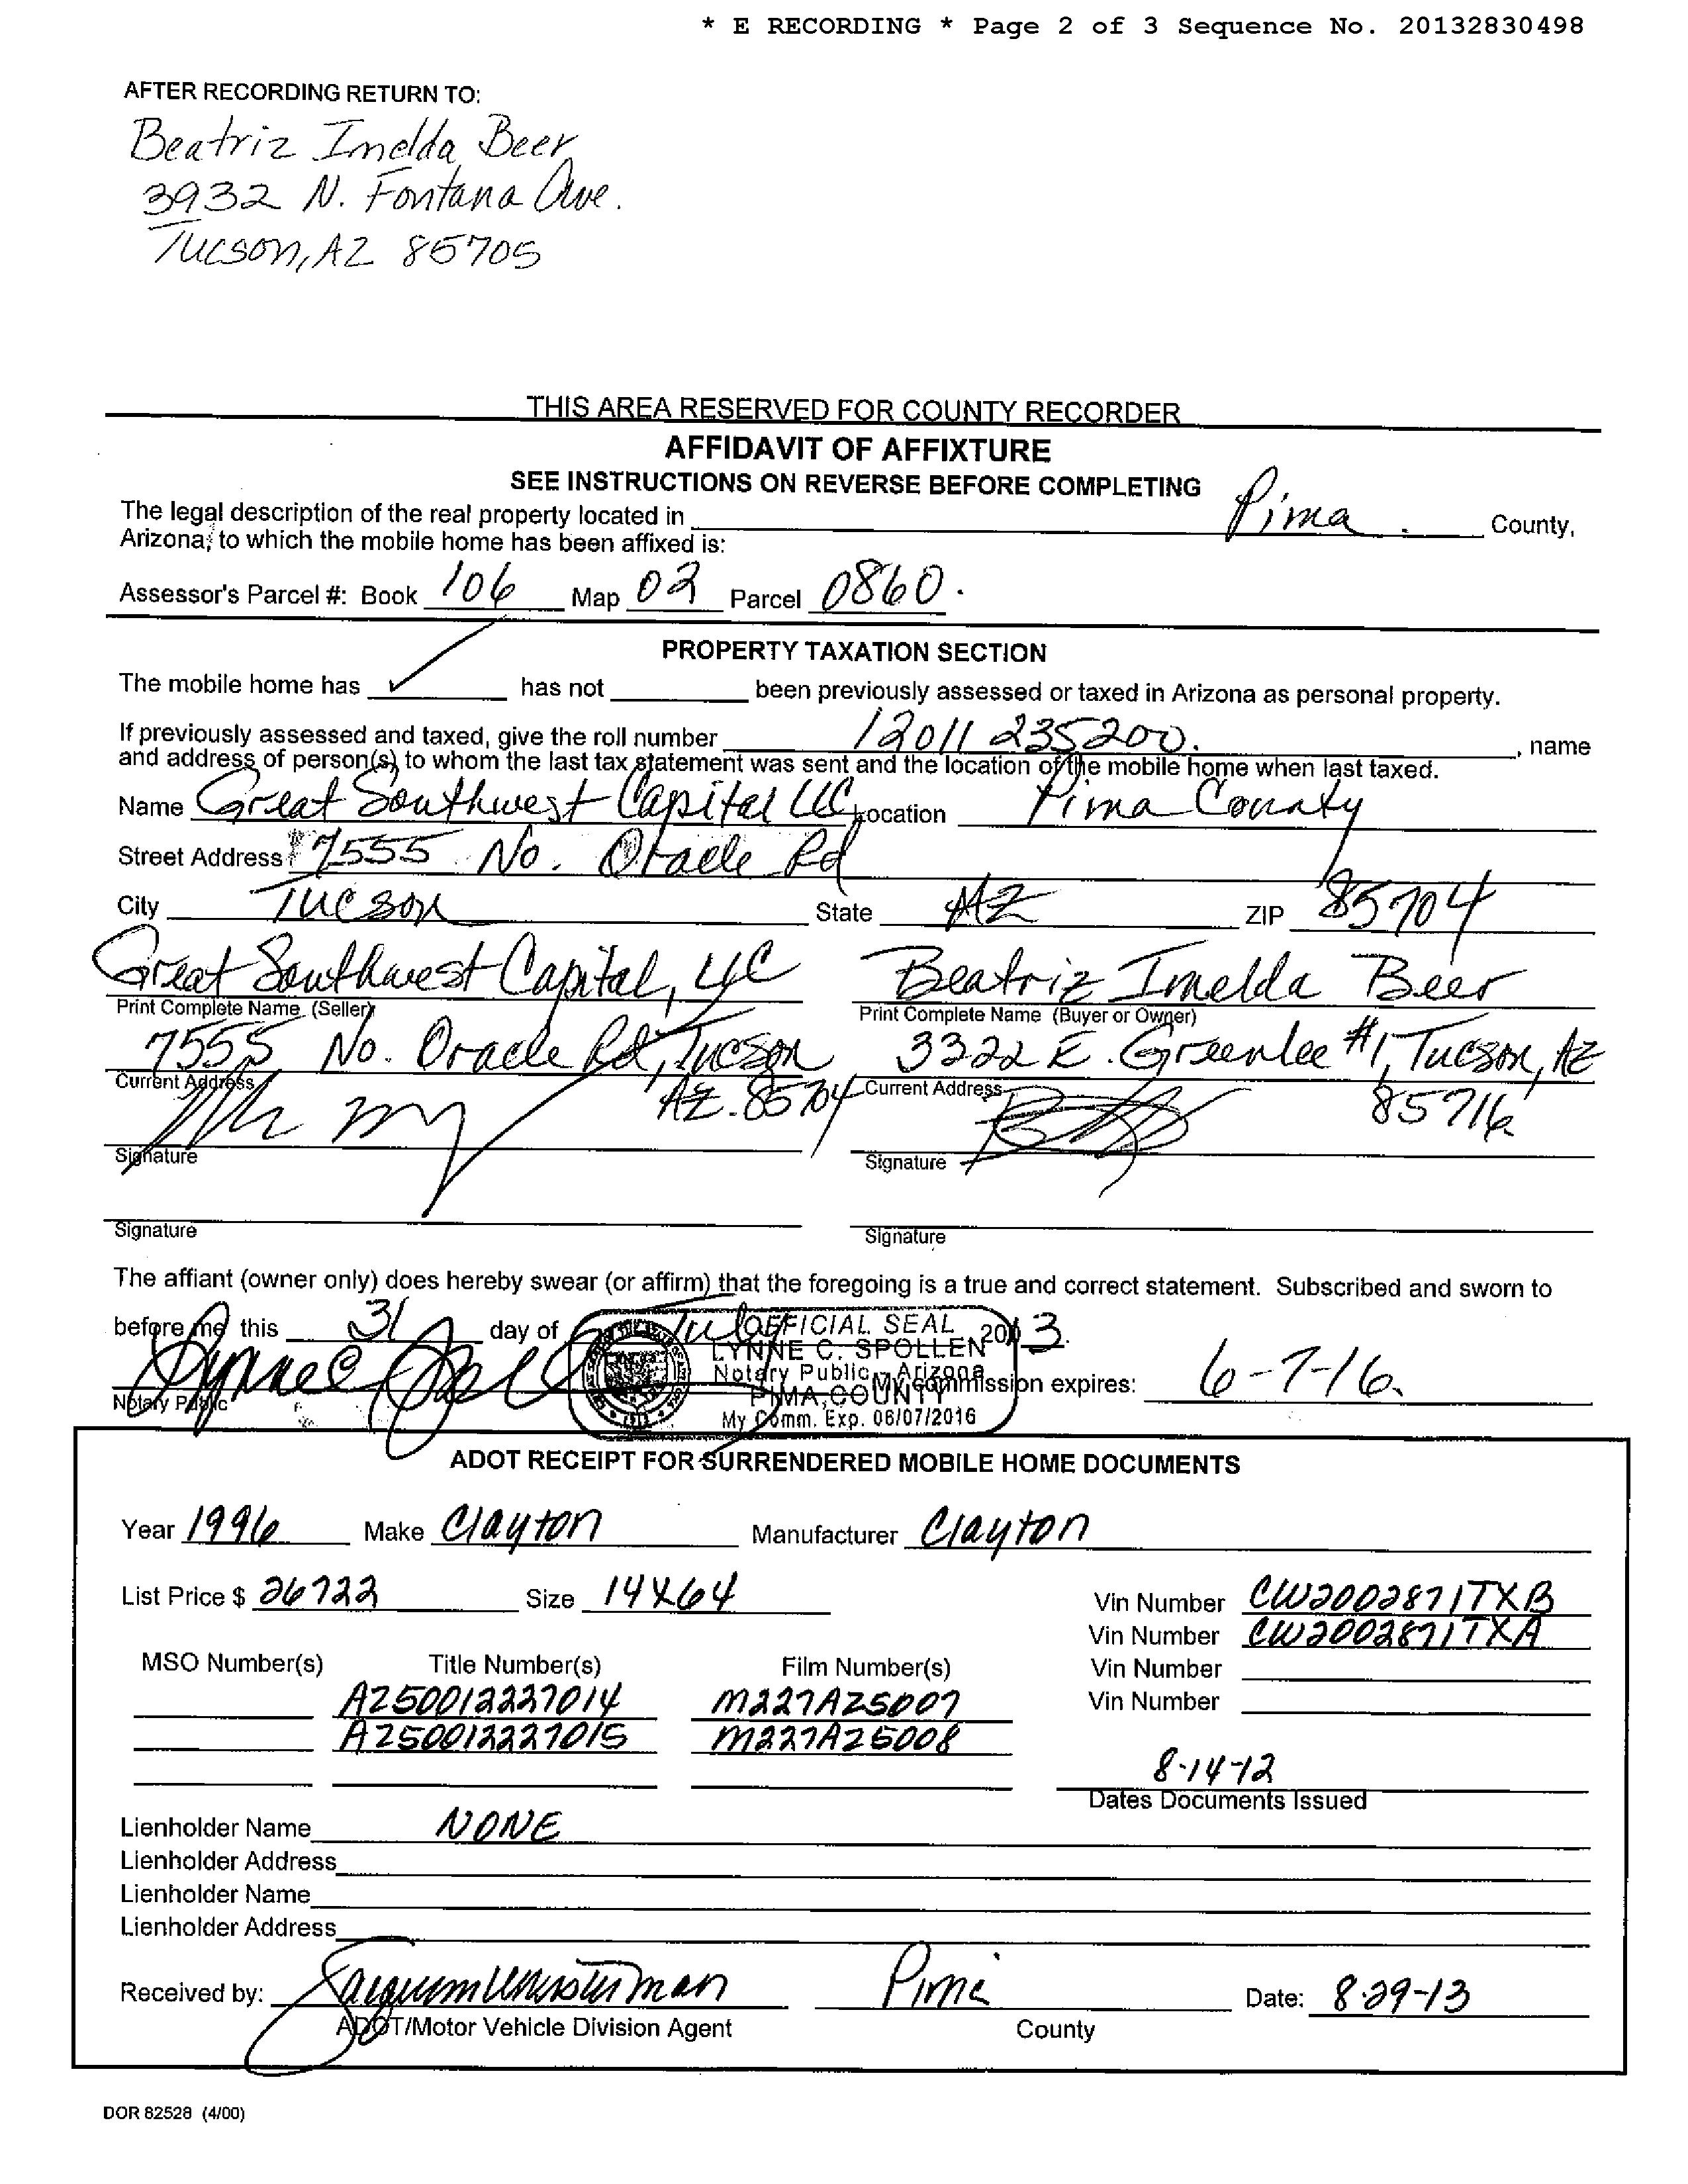 * E RECORDING * Page 2 of 3 Sequence No. 20132830498
AFTER RECORDING RETURN TO:
Beatriz Imelda Beer
3932 N. Fontana Ave.
Tucson, AZ 85705
THIS AREA RESERVED FOR COUNTY RECORDER
AFFIDAVIT OF AFFIXTURE
SEE INSTRUCTIONS ON REVERSE BEFORE COMPLETING
The legal description of the real property located in Pima County,
Arizona, to which the mobile home has been affixed is:
Assessor's Parcel #: Book 106 Map 02 Parcel 0860.
PROPERTY TAXATION SECTION
The mobile home has ✓ has not been previously assessed or taxed in Arizona as personal property.
If previously assessed and taxed, give the roll number 12011 235200. , name
and address of person(s) to whom the last tax statement was sent and the location of the mobile home when last taxed.
Name Great Southwest Capital LLC Location Pima County
Street Address 7555 No. Oracle Rd
City Tucson State AZ ZIP 85704
Great Southwest Capital, LLC Beatriz Imelda Beer
Print Complete Name (Seller) Print Complete Name (Buyer or Owner)
7555 No. Oracle Rd, Tucson 3322 E. Greenlee #1, Tucson, AZ
Current Address AZ. 85704 Current Address 85716
Signature Signature
Signature Signature
The affiant (owner only) does hereby swear (or affirm) that the foregoing is a true and correct statement. Subscribed and sworn to
before me this 31 day of July 2013.
OFFICIAL SEAL
LYNNE C. SPOLLEN
Notary Public - Arizona
PIMA COUNTY
My Comm. Exp. 06/07/2016
My commission expires: 6-7-16.
Notary Public
ADOT RECEIPT FOR SURRENDERED MOBILE HOME DOCUMENTS
Year 1996 Make Clayton Manufacturer Clayton
List Price $ 26722 Size 14X64 Vin Number CW2002871TXB
Vin Number CW2002871TXA
MSO Number(s) Title Number(s) Film Number(s) Vin Number
AZ50012227014 M227AZ5007 Vin Number
AZ50012227015 M227AZ5008
8-14-12
Dates Documents Issued
Lienholder Name NONE
Lienholder Address
Lienholder Name
Lienholder Address
Received by: Pima Date: 8-29-13
ADOT/Motor Vehicle Division Agent County
DOR 82528 (4/00)